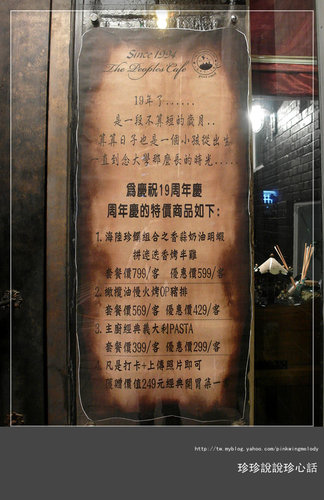 Since 1994
The Peoples Cafe
19年了......
是一段不算短的歲月..
算算日子也是一個小孩從出生
一直到念大學那麼長的時光.....
為慶祝19周年慶
周年慶的特價商品如下:
1.海陸珍饌組合之香蒜奶油明蝦
拼迷迭香烤半雞
套餐價799/客 優惠價599/客
2.橄欖油慢火烤OP豬排
套餐價569/客 優惠價429/客
3.主廚經典義大利PASTA
套餐價399/客 優惠價299/客
4.凡是打卡+上傳照片即可
獲贈價值249元經典開胃菜一
http://tw.myblog.yahoo.com/pinkwingmelody
珍珍說說珍心話